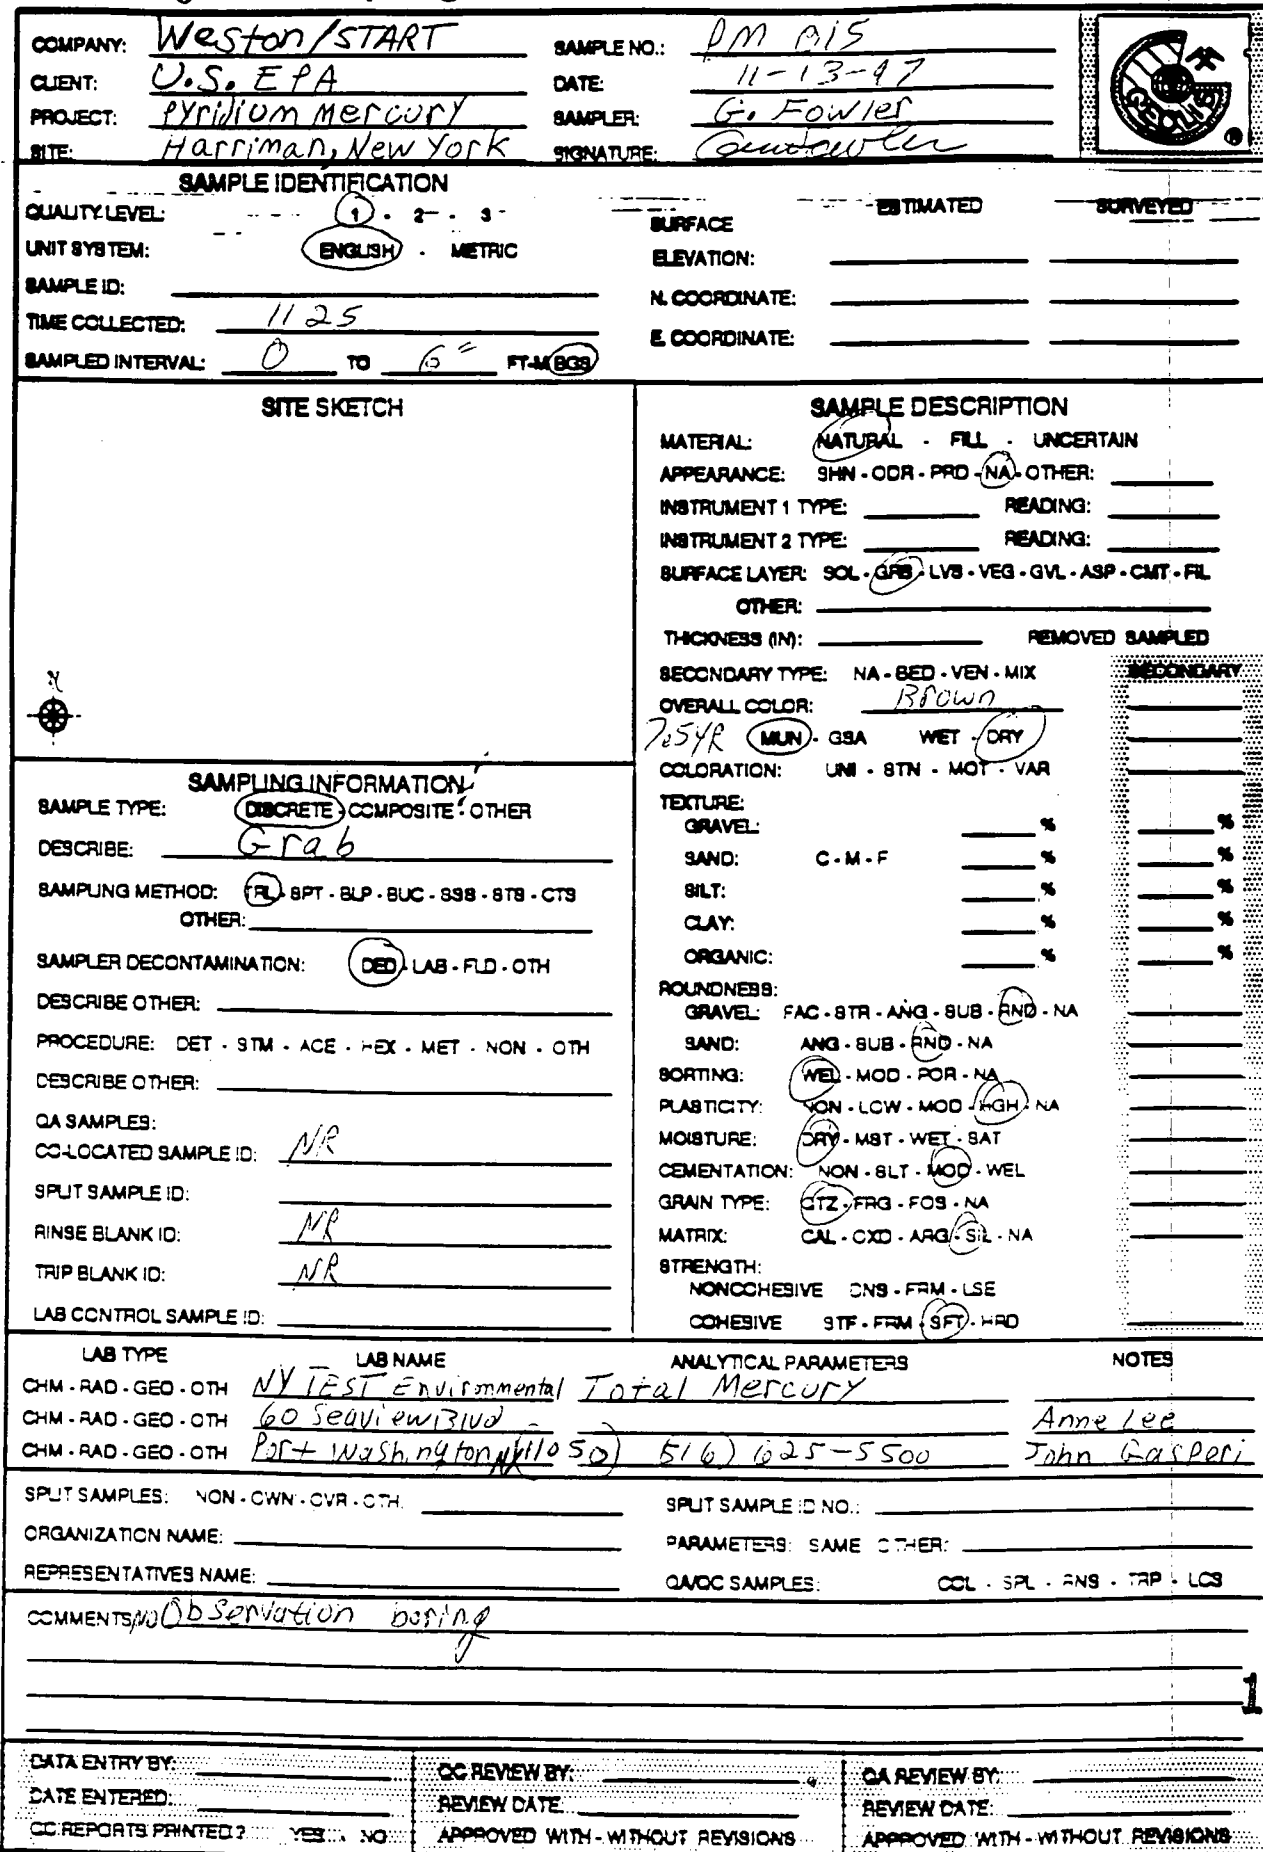 COMPANY: Weston/START SAMPLE NO.: PM A15
CLIENT: U.S. EPA DATE: 11-13-97
PROJECT: Pyridium Mercury SAMPLER: G. Fowler
SITE: Harriman, New York SIGNATURE:
SAMPLE IDENTIFICATION
QUALITY LEVEL: 1 - 2 - 3 ESTIMATED SURVEYED
SURFACE
UNIT SYSTEM: ENGLISH - METRIC ELEVATION:
SAMPLE ID: N. COORDINATE:
TIME COLLECTED: 1125 E. COORDINATE:
SAMPLED INTERVAL: 0 TO 6" FT-M BGS
SITE SKETCH
N
SAMPLING INFORMATION
SAMPLE TYPE: DISCRETE - COMPOSITE - OTHER
DESCRIBE: Grab
SAMPLING METHOD: TRL - SPT - BLP - BUC - SSB - STS - CTS
OTHER:
SAMPLER DECONTAMINATION: DED - LAB - FLD - OTH
DESCRIBE OTHER:
PROCEDURE: DET - STM - ACE - HEX - MET - NON - OTH
DESCRIBE OTHER:
QA SAMPLES:
CO-LOCATED SAMPLE ID: NR
SPLIT SAMPLE ID:
RINSE BLANK ID: NR
TRIP BLANK ID: NR
LAB CONTROL SAMPLE ID:
SAMPLE DESCRIPTION
MATERIAL: NATURAL - FILL - UNCERTAIN
APPEARANCE: SHN - ODR - PRD - NA - OTHER:
INSTRUMENT 1 TYPE: READING:
INSTRUMENT 2 TYPE: READING:
SURFACE LAYER: SOL - GRS - LVS - VEG - GVL - ASP - CMT - FIL
OTHER:
THICKNESS (IN): REMOVED SAMPLED
SECONDARY TYPE: NA - BED - VEN - MIX SECONDARY
OVERALL COLOR: Brown
7.5YR MUN - GSA WET - DRY
COLORATION: UNI - STN - MOT - VAR
TEXTURE:
GRAVEL: % %
SAND: C - M - F % %
SILT: % %
CLAY: % %
ORGANIC: % %
ROUNDNESS:
GRAVEL: FAC - STR - ANG - SUB - RND - NA
SAND: ANG - SUB - RND - NA
SORTING: WEL - MOD - POR - NA
PLASTICITY: NON - LOW - MOD - HGH - NA
MOISTURE: DRY - MST - WET - SAT
CEMENTATION: NON - SLT - MOD - WEL
GRAIN TYPE: QTZ - FRG - FOS - NA
MATRIX: CAL - OXD - ARG - SIL - NA
STRENGTH:
NONCOHESIVE DNS - FRM - LSE
COHESIVE STF - FRM - SFT - HRD
LAB TYPE LAB NAME ANALYTICAL PARAMETERS NOTES
CHM - RAD - GEO - OTH NYTEST Environmental Total Mercury
CHM - RAD - GEO - OTH 60 Seaview Blvd Anne Lee
CHM - RAD - GEO - OTH Port Washington NY (11050) 516) 625-5500 John Gasperi
SPLIT SAMPLES: NON - OWN - OVR - OTH: SPLIT SAMPLE ID NO.:
ORGANIZATION NAME: PARAMETERS: SAME OTHER:
REPRESENTATIVES NAME: QA/QC SAMPLES: COL - SPL - RNS - TRP - LCS
COMMENTS: NO Observation boring
1
DATA ENTRY BY: QC REVIEW BY: QA REVIEW BY:
DATE ENTERED: REVIEW DATE: REVIEW DATE:
QC REPORTS PRINTED? YES NO APPROVED WITH - WITHOUT REVISIONS APPROVED WITH - WITHOUT REVISIONS